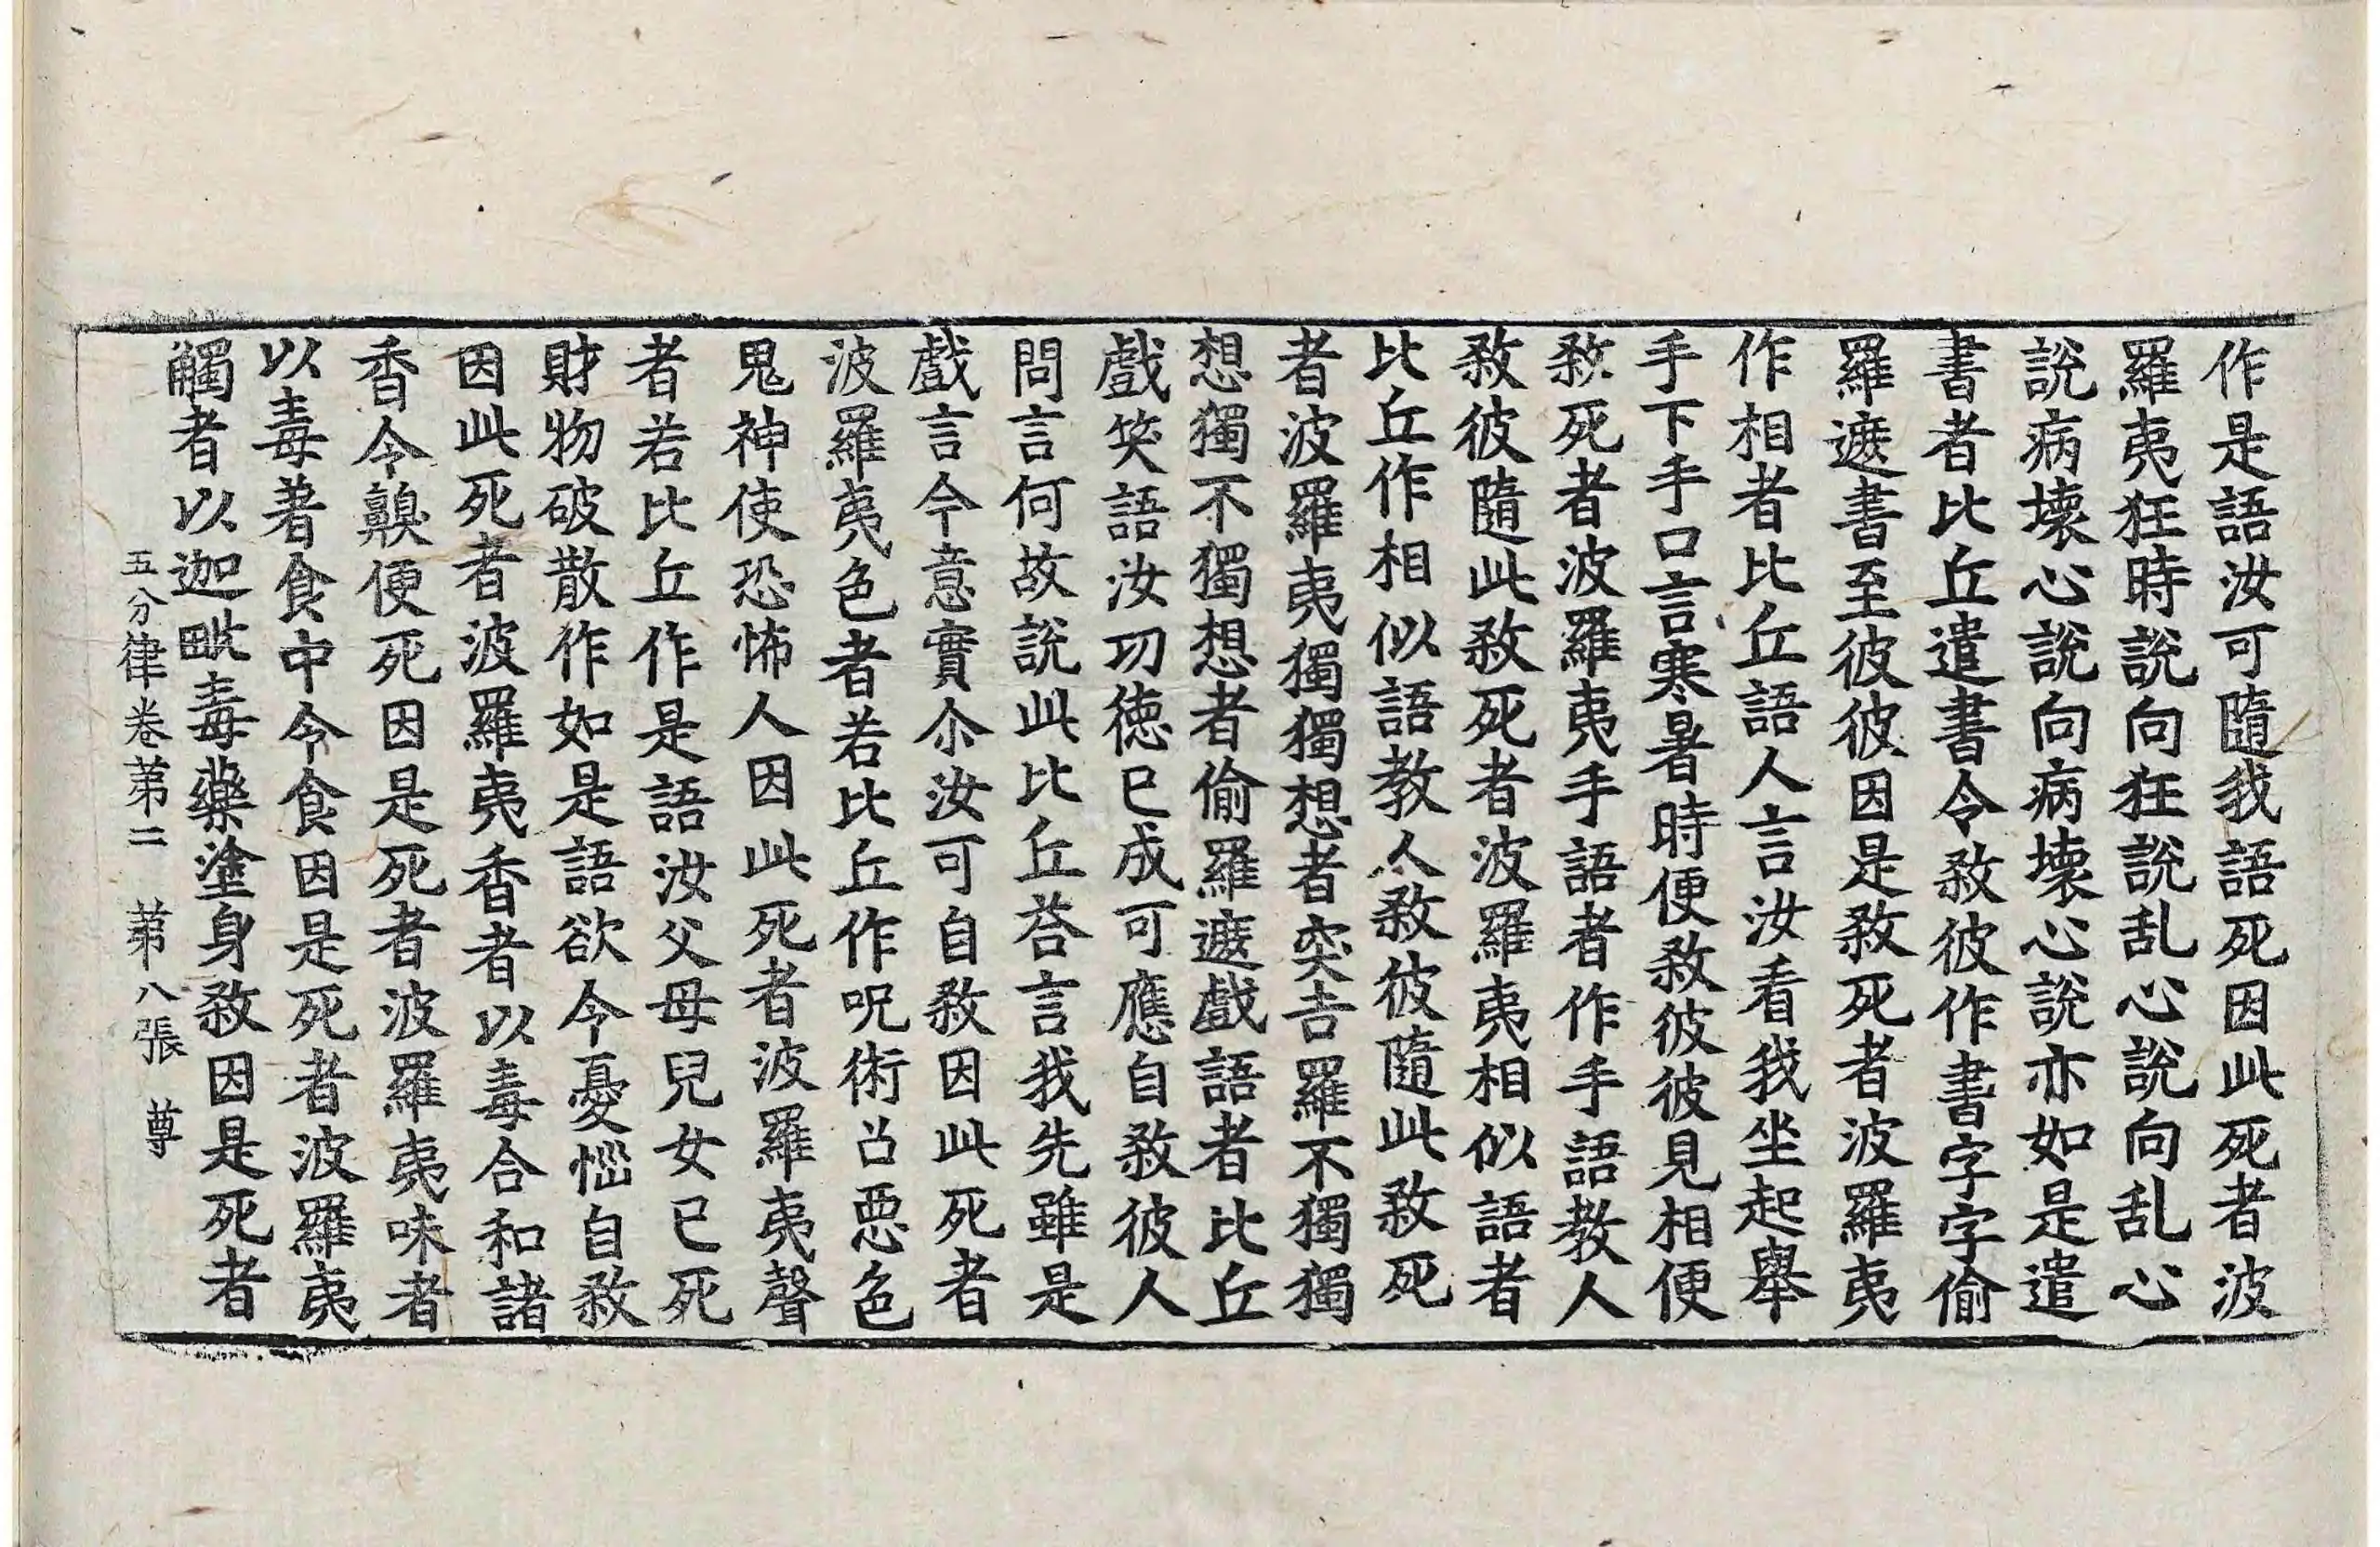 作是語汝可隨我語死因此死者波
羅夷狂時說向狂說乱心說向乱心
說病壞心說向病壞心說亦如是遣
書者比丘遣書令敎彼作書字字偷
羅遮書至彼彼因是敎死者波羅夷
作相者比丘語人言汝看我坐起舉
手下手口言寒暑時便敎彼彼見相便
敎死者波羅夷手語者作手語教人
敎彼隨此敎死者波羅夷相似語者
比丘作相似語教人敎彼隨此敎死
者波羅夷獨獨想者突吉羅不獨獨
想獨不獨想者偷羅遮戲語者比丘
戲笑語汝功德已成可應自敎彼人
問言何故說此比丘荅言我先雖是
戲言今意實尒汝可自敎因此死者
波羅夷色者若比丘作呪術召惡色
鬼神使恐怖人因此死者波羅夷聲
者若比丘作是語汝父母兒女已死
財物破散作如是語欲令憂惱自敎
因此死者波羅夷香者以毒合和諸
香令齅便死因是死者波羅夷味者
以毒著食中令食因是死者波羅夷
觸者以迦毗毒藥塗身敎因是死者
五分律卷第二 第八張 尊